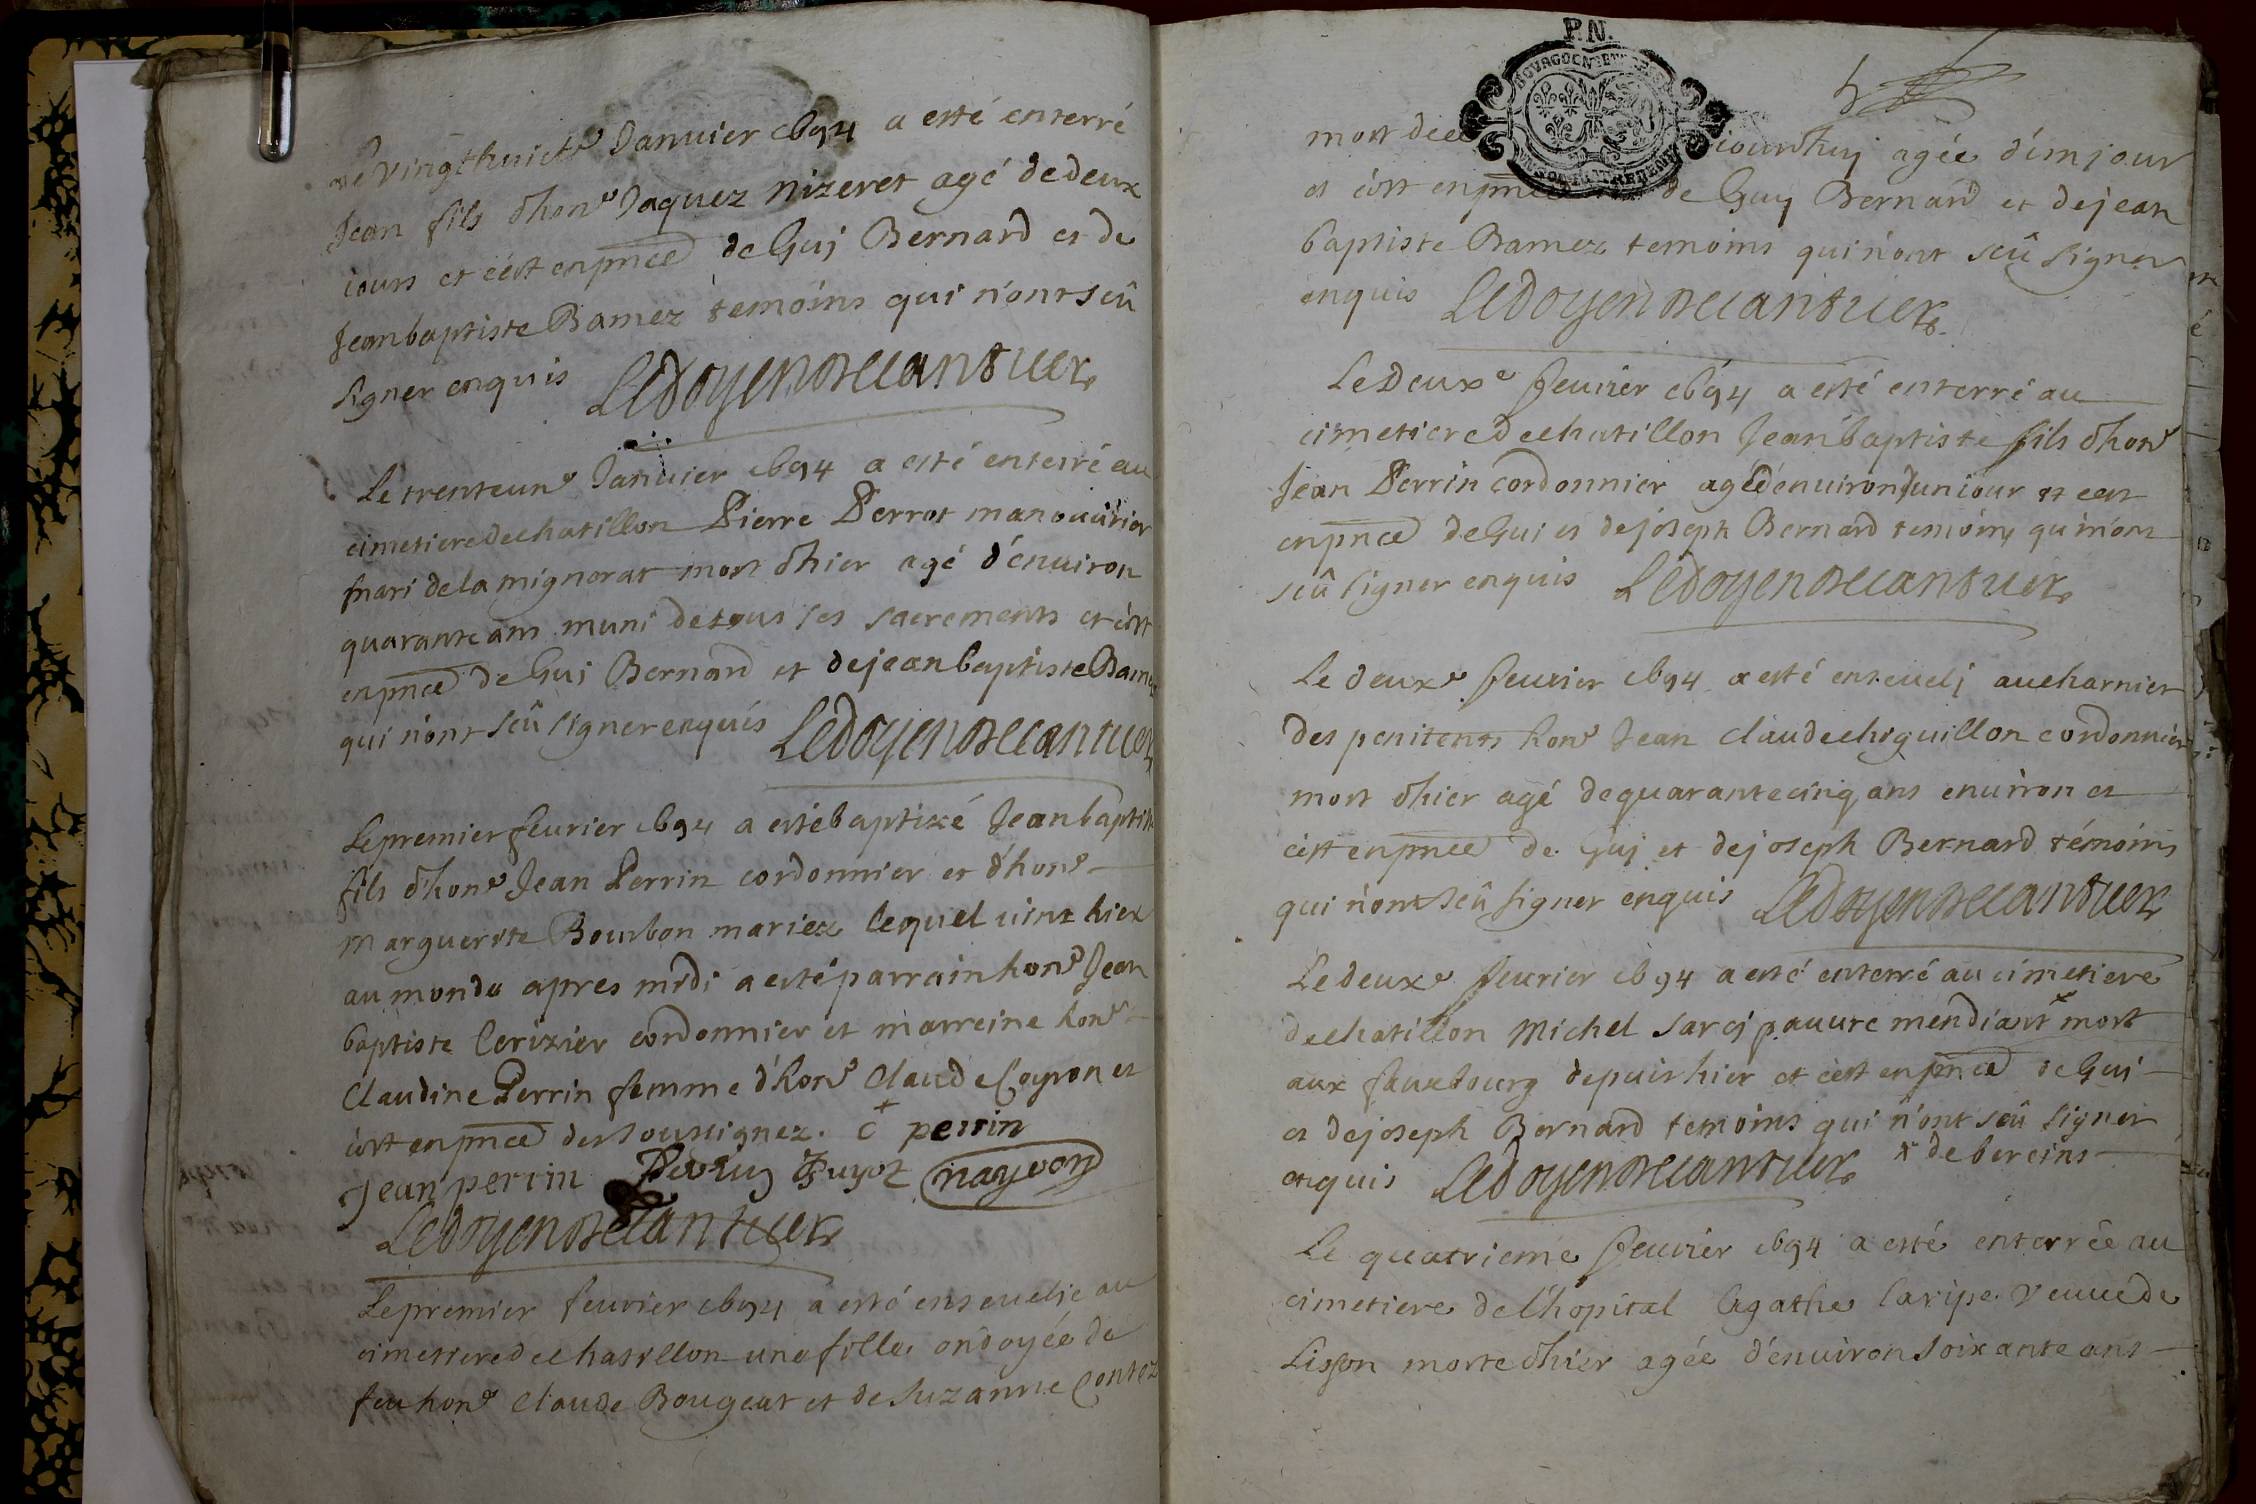 Le vingthuicte Januier 1694 a esté enterré
Jean fils d'hone Jaquez nizeret agé de deux
iours et c'est enpnce de Gui Bernard et de
Jeanbaptiste Bamez temoins qui n'ont sceû
signer enquis Ledoyen decantuer
Le trenteune Januier 1694 a esté enterré au
cimetiere de chatillon Pierre Perrot manouurier
mari de la mignorat mort d'hier agé d'enuiron
quarante ans muni de tous ses sacrements et c'est
enpnce de Gui Bernard et de jeanbaptiste Bamez
qui n'ont sceû signer enquis Ledoyen decantuer
Le premier feurier 1694 a esté baptizé Jeanbaptiste
fils d'hone Jean Perrin cordonnier et d'hone
Marguerite Bourbon mariez lequel uint hier
au monde apres midi a esté parrain hone Jean
baptiste Cerizier cordonnier et marreine hone
Claudine Perrin femme d'hone Claude Coyron et
c'est enpnce des soussignez. C perrin
Jean perrin Perrin Guyot nayvon
Ledoyen decantuer
Le premier feurier 1694 a esté enseuelie au
cimetiere de chatillon une fille ondoyée de
feu hone Claude Bougeat et de Suzanne Contoz
P.N.
BOURGOGNE ET BRESSE
mort dee iourdhuy agée d'un jour
et c'est enpnce de Guy Bernard et de jean
baptiste Bamez temoins qui n'ont sceû signer
enquis Ledoyen decantuer
Le Deuxe feurier 1694 a esté enterré au
cimetiere de chatillon Jeanbaptiste fils d'hone
Jean Perrin cordonnier agé d'enuiron un iour et c'est
enpnce de Gui et de joseph Bernard temoins qui n'ont
sceû signer enquis Ledoyen decantuer
Le deuxe feurier 1694 a esté enseueli au charnier
des penitents hone Jean Claude chiquillon cordonnier
mort d'hier agé de quarante cinq ans enuiron et
c'est enpnce de Gui et de joseph Bernard témoins
qui n'ont sceû signer enquis Ledoyen decantuer
Le deuxe feurier 1694 a esté enterré au cimetiere
de chatillon Michel Sarcj pauure mendiant x mort
aux fauxbourg depuis hier et c'est enpnce de Gui
et de joseph Bernard temoins qui n'ont sceû signer
enquis Ledoyen decantuer x de bereins
Le quatrieme feurier 1694 a esté enterrée au
cimetiere de l'hopital Agathe laripe veuue de
Lisson morte d'hier agée d'enuiron soixante ans